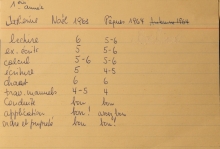 1ère année
Noël 1963 Pâques 1964
lecture 6 5-6
ex. écrits 5 5-6
calcul 5-6 5-6
écriture 5 4-5
chant 6 6
trav. manuels 4-5 4
Conduite bon bon
application bon! assez bon
ordre et propreté bon! bon